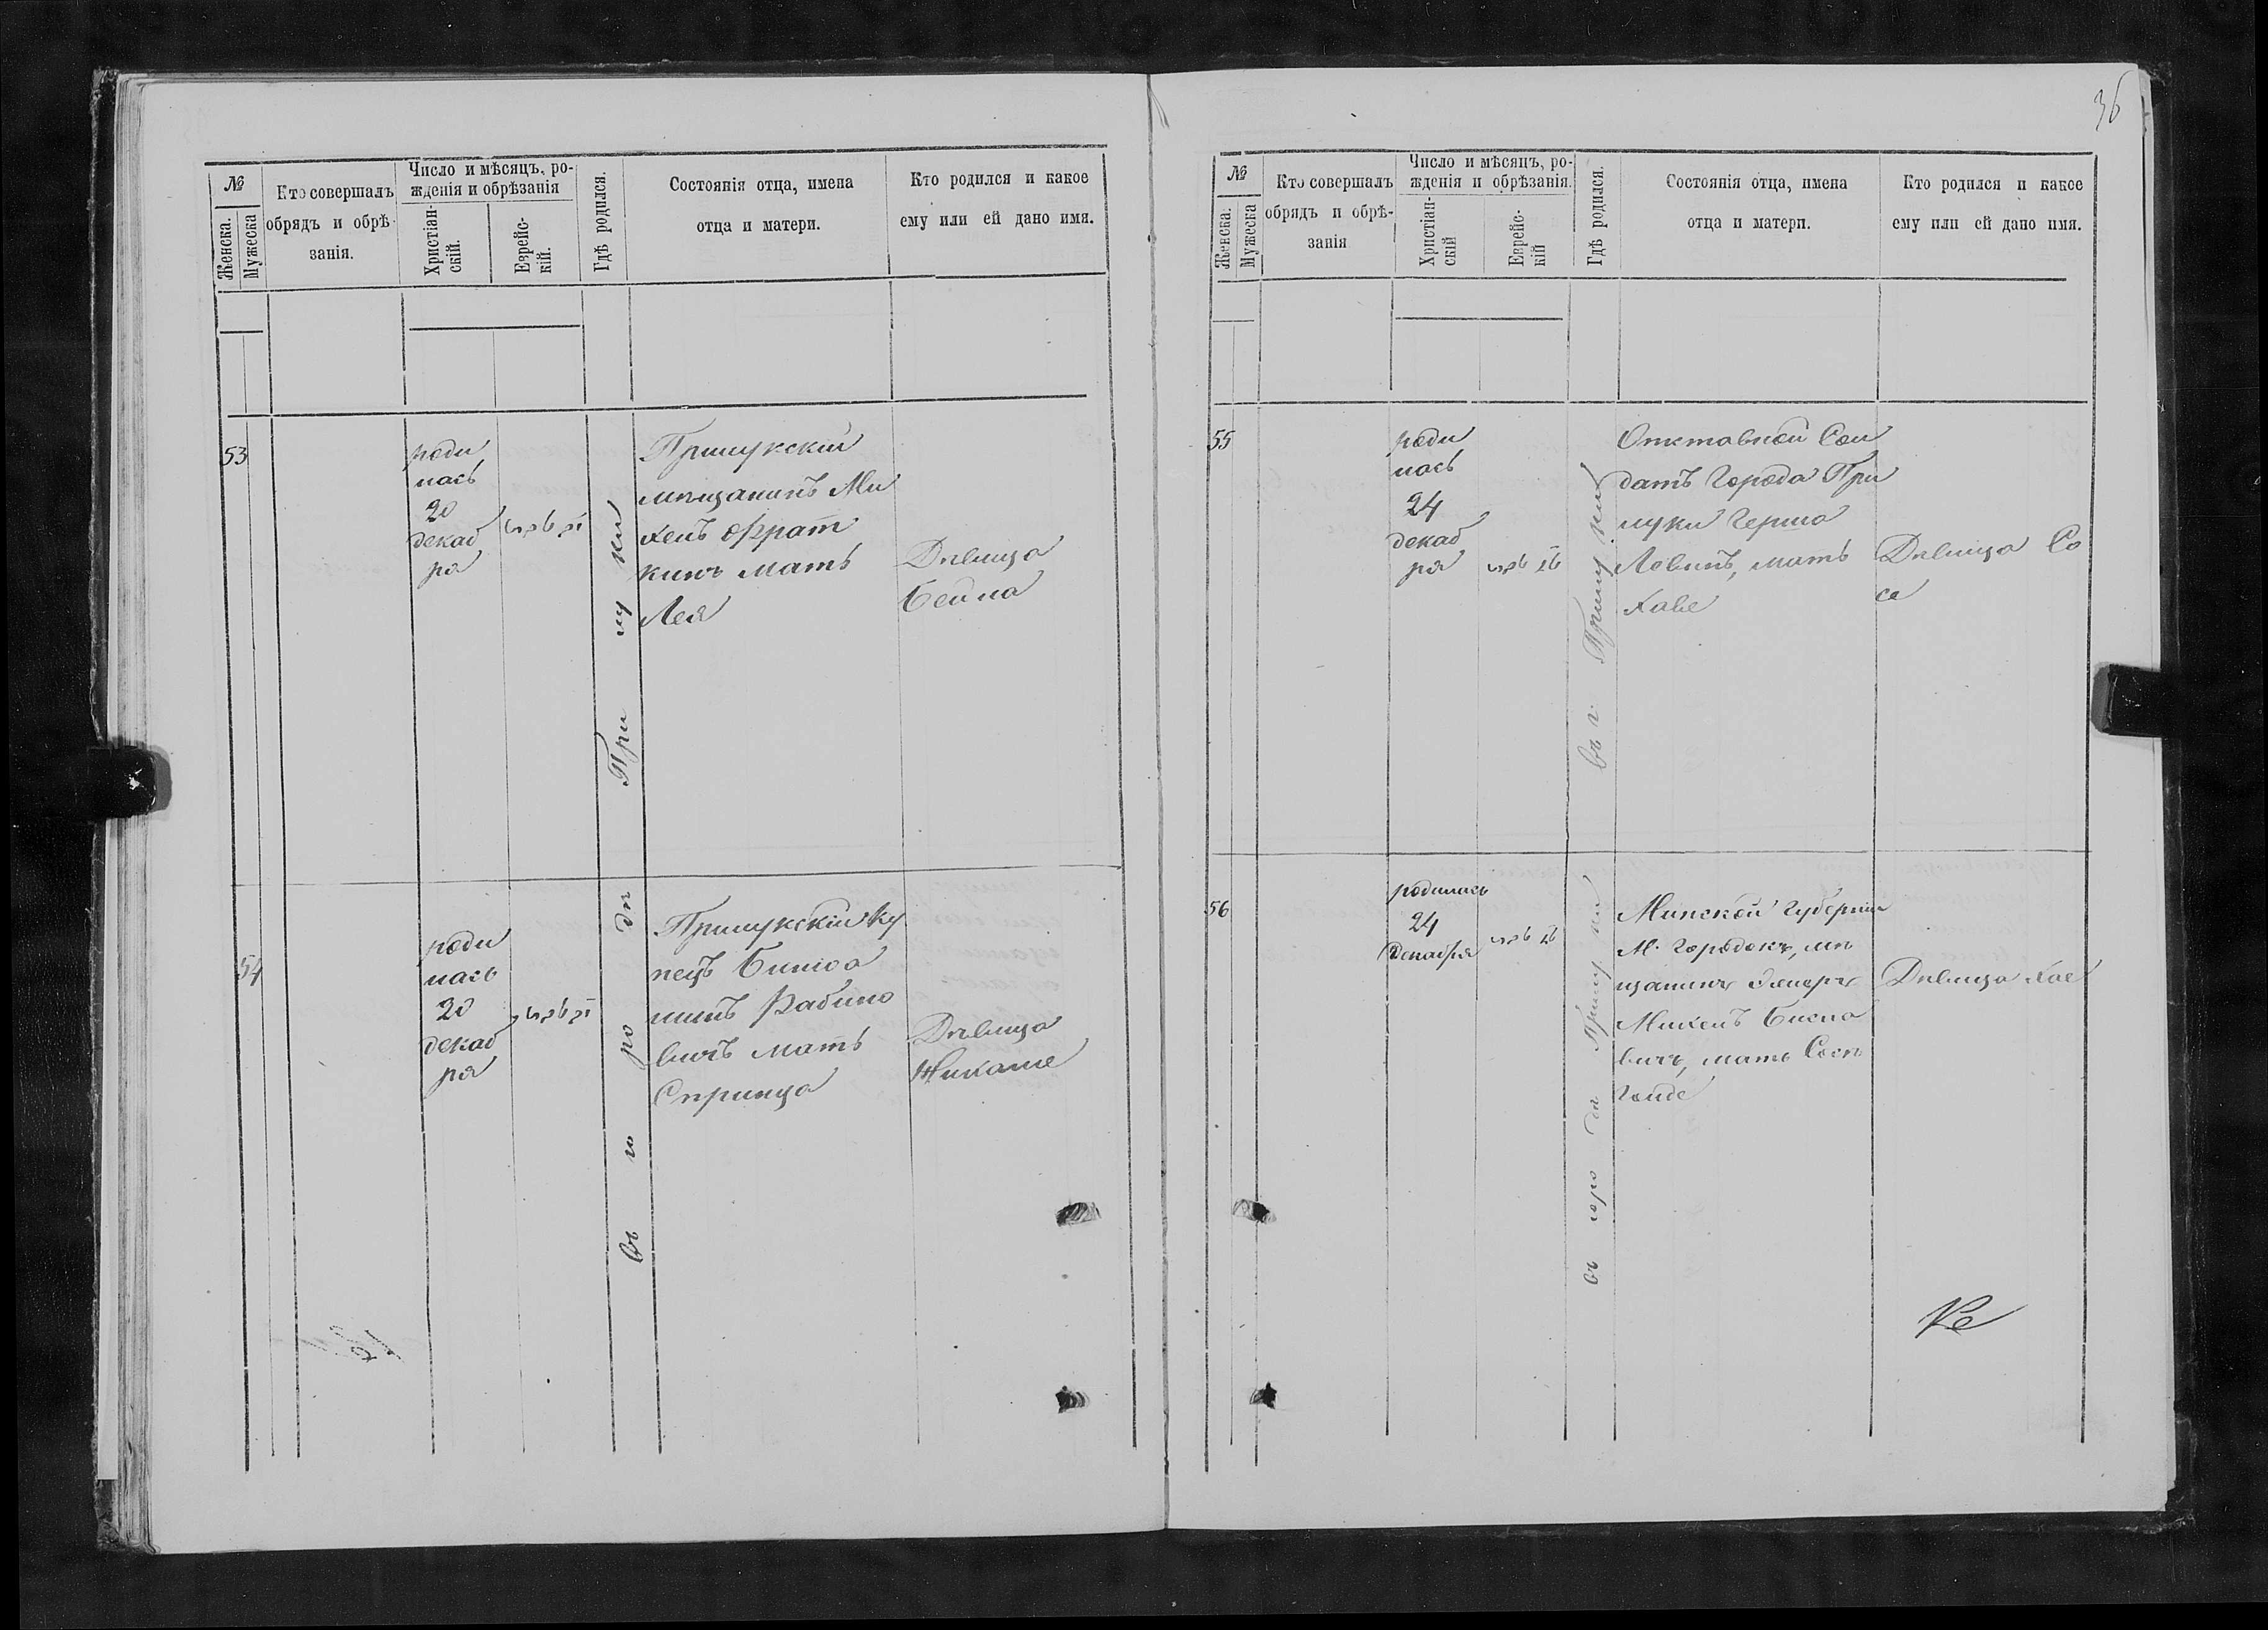 №
Женска.
Мужеска
Кто совершалъ
обрядъ и обрѣ-
занія.
Число и мѣсяцъ, ро-
жденія и обрѣзанія
Христіан-
скій.
Еврейс-
кій.
Гдѣ родился.
Состоянія отца, имена
отца и матери.
Кто родился и какое
ему или ей дано имя.
53
роди
лась
20
декаб
ря
въ го ро дѣ При лу ки
Прилукскій
мѣщанинъ Ми
хель Фрат
кинъ мать
Лея
Дѣвица
Бейла
54
роди
лась
20
декаб
ря
Прилукскій Ку
пецъ Биніо
минъ Рабино
вичъ мать
Спринца
Дѣвица
36
№
Женска.
Мужеска
Кто совершалъ
обрядъ и обрѣ-
занія
Число и мѣсяцъ, ро-
жденія и обрѣзанія.
Христіан-
скій
Еврейс-
кій
Гдѣ родился.
Состоянія отца, имена
отца и матери.
Кто родился и какое
ему или ей дано имя.
55
роди
лась
24
декаб
ря
въ г. Прилуки
Отставной Сол
датъ Города При
луки Гершо
Левинъ, мать
Хаве
Дѣвица Со
се
56
родилась
24
Декабря
въ горо дѣ Прилу ки
Минской Губерніи
М. Городокъ, мѣ
щанинъ
Михель
вичъ, мать
Дѣвица Хае